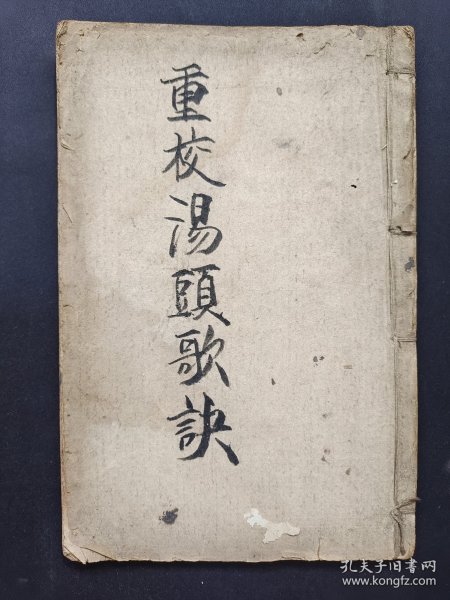 重校湯頭歌訣
孔夫子旧书网
www.kongfz.com